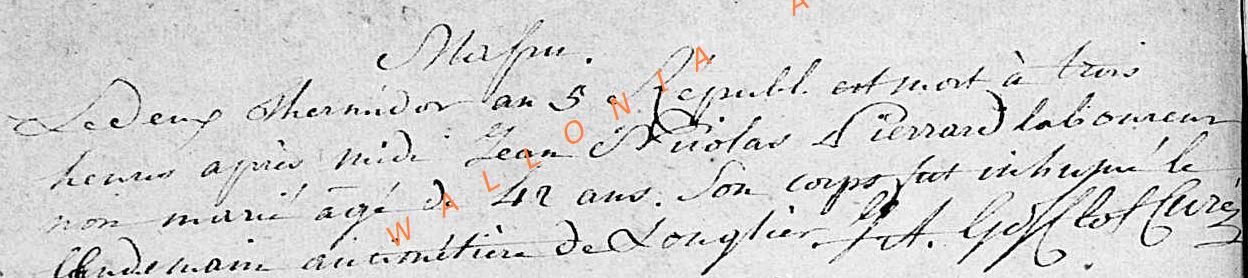 Massu.
Le deux thermidor an 5 Républ. est mort à trois
heures après midi Jean Nicolas Pierrard laboureur
non marié âgé de 42 ans. Son corps fut inhumé le
lendemain au cimétière de Longlier. J. A. Curé
WALLONIA
A